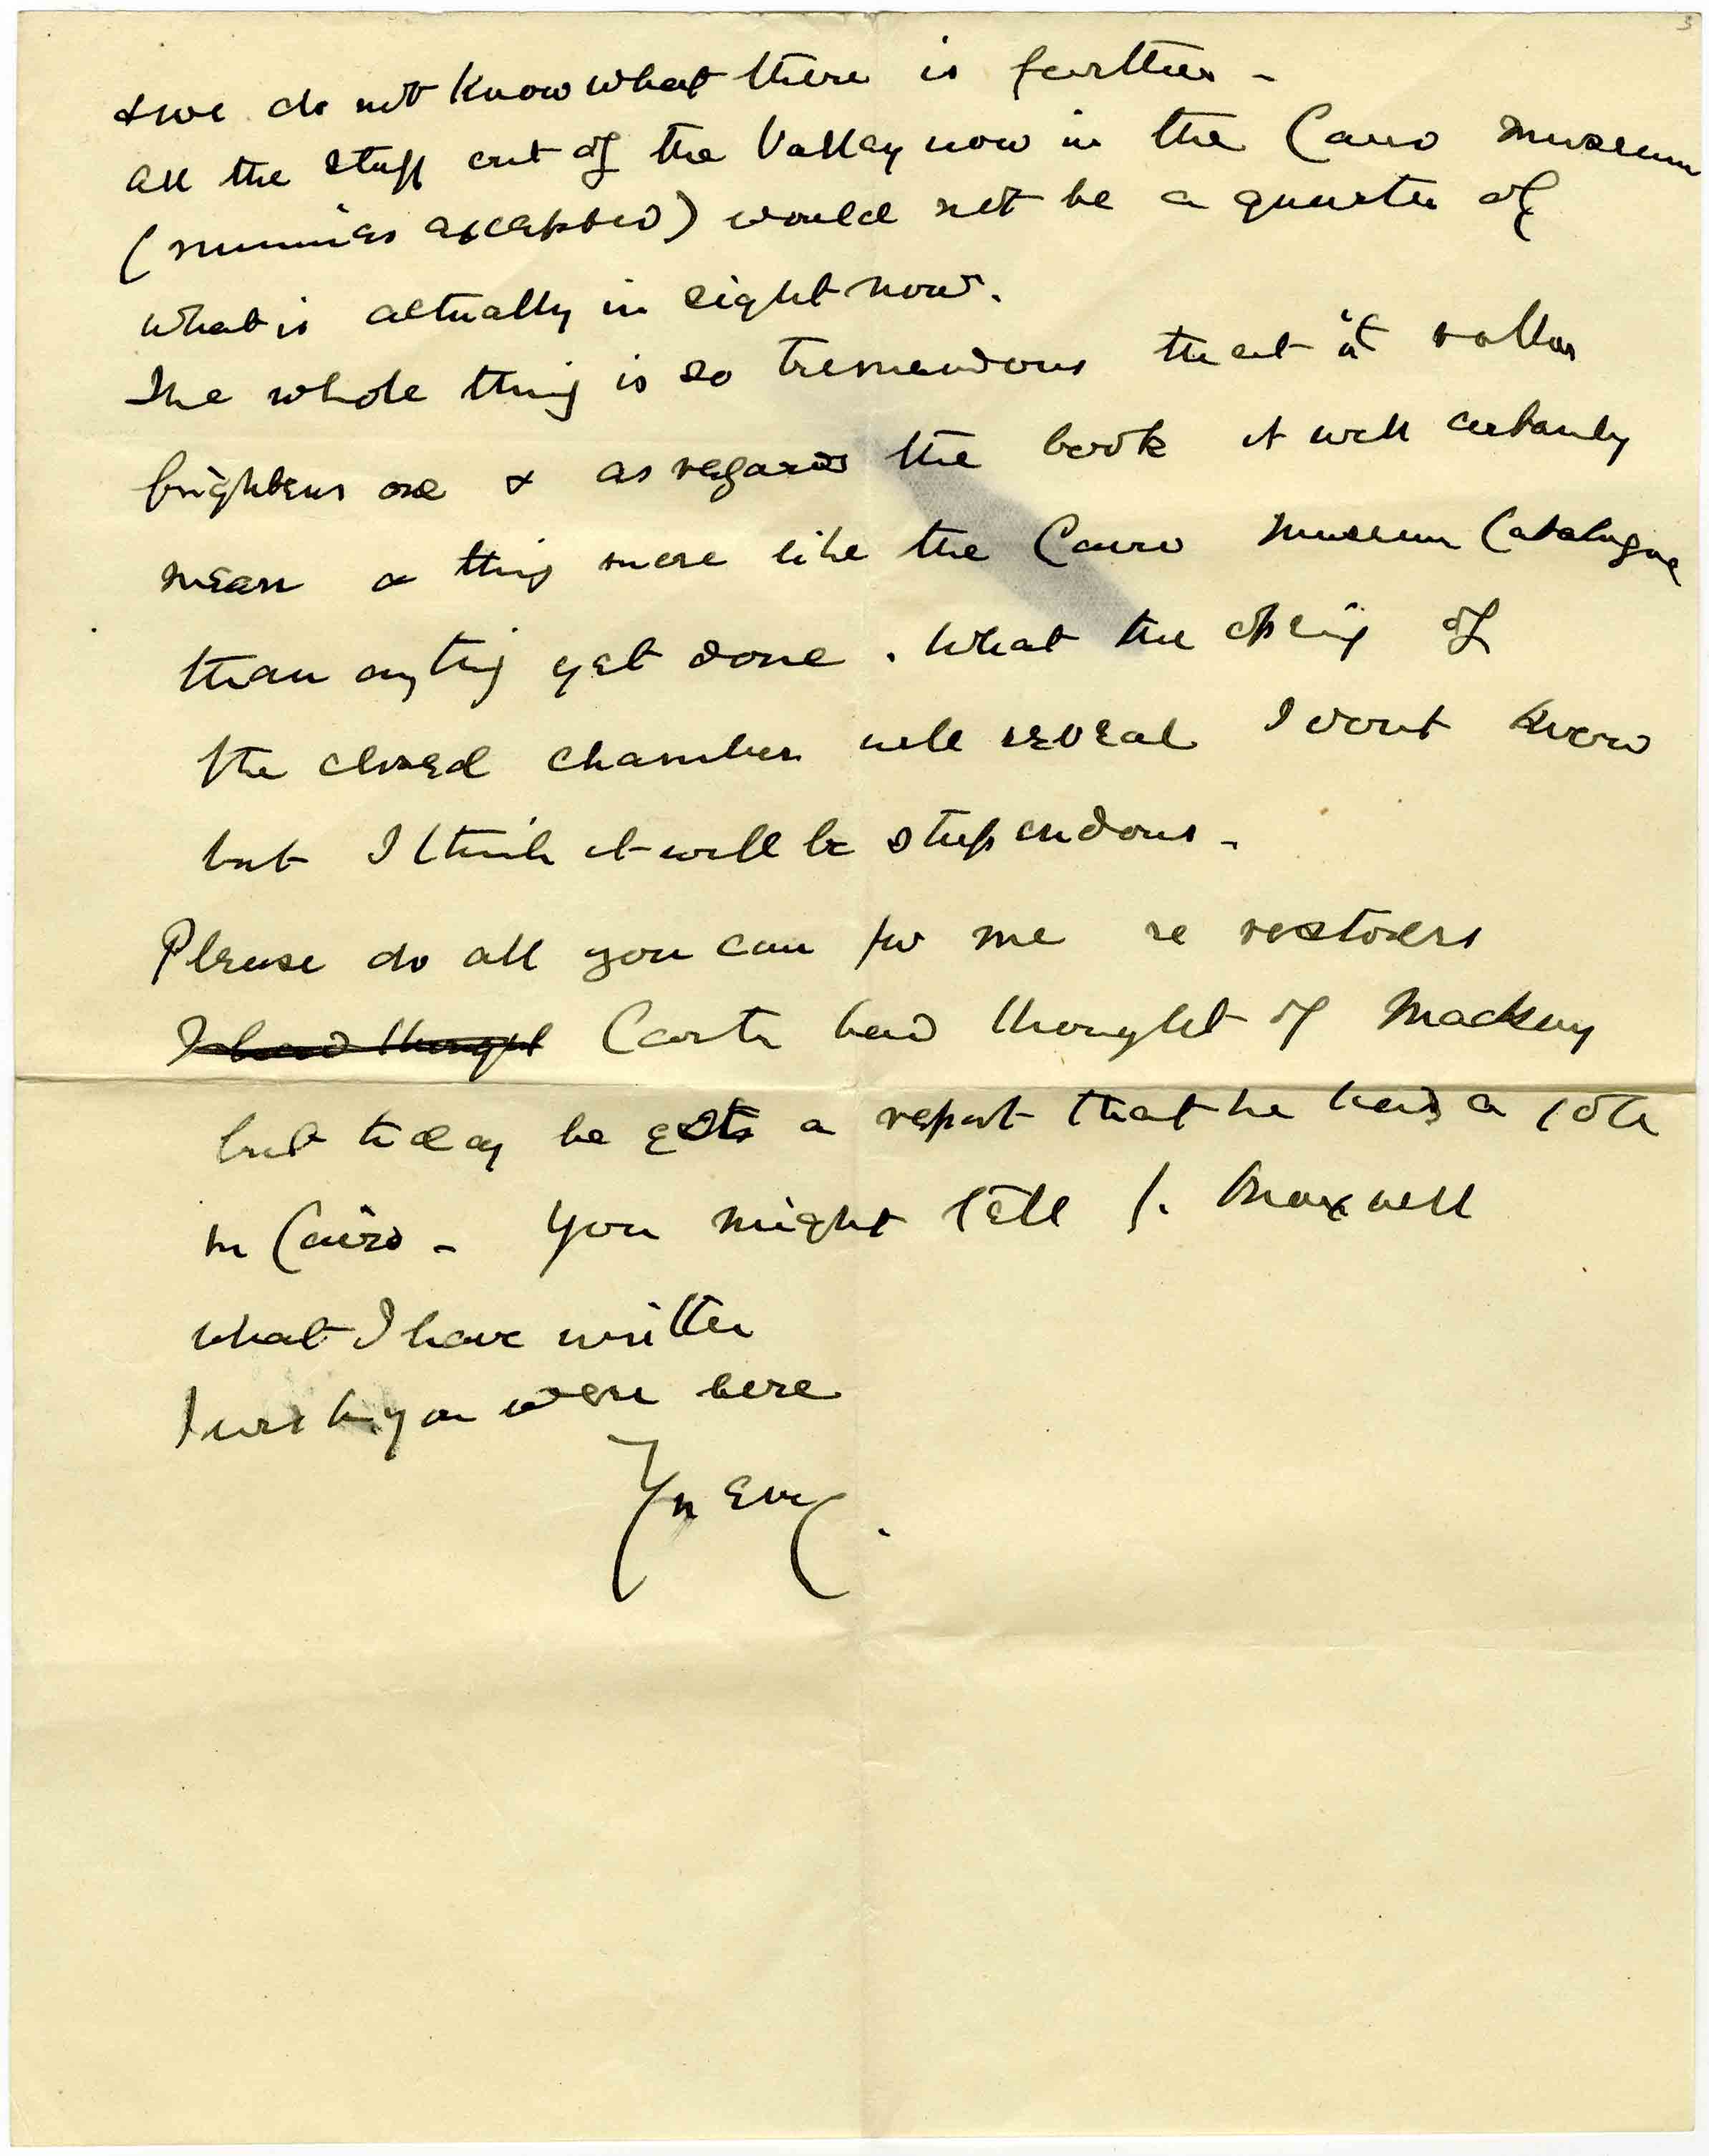 3
& we do not know what there is further -
All the stuff out of the Valley now in the Cairo Museum
(mummies excepted) would not be a quarter of
what is actually in sight now.
The whole thing is so tremendous that it rather
frightens one & as regards the book it will certainly
mean a thing more like the Cairo Museum Catalogue
than anything yet done. What the opening of
the closed chamber will reveal I dont know
but I think it will be stupendous -
Please do all you can for me re restorers
I had thought Carter had thought of Mackay
but today he gets a report that he has a job
in Cairo - You might tell J. Maxwell
what I have written
I wish you were here
Yrs Ever
C.